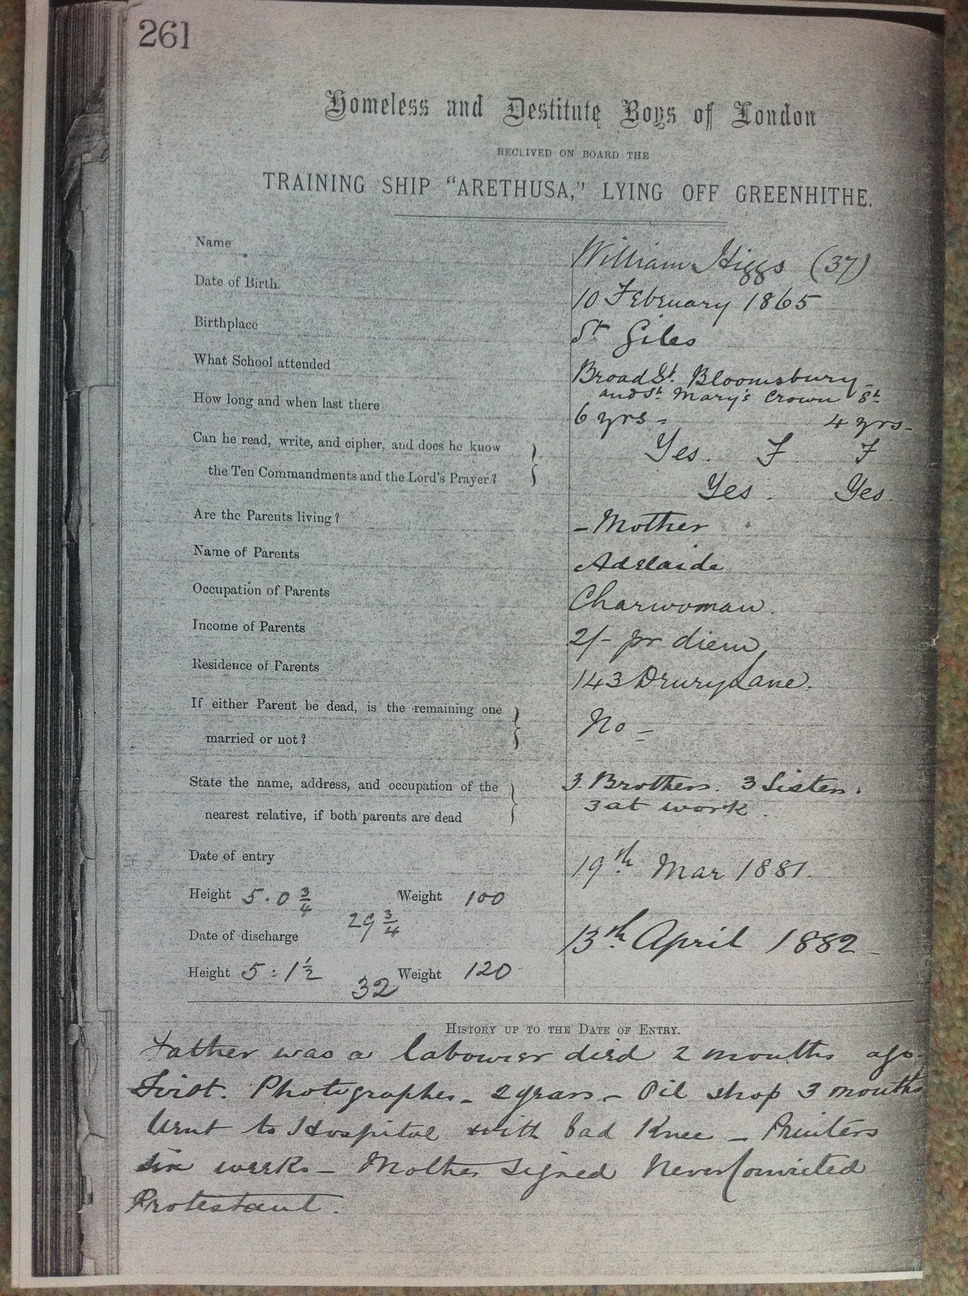 261
Homeless and Destitute Boys of London
RECEIVED ON BOARD THE
TRAINING SHIP "ARETHUSA," LYING OFF GREENHITHE.
Name William Higgs (37)
Date of Birth 10 February 1865
Birthplace St Giles
What School attended Broad St. Bloomsbury
and St Mary's Crown St
How long and when last there 6 yrs - 4 yrs -
Can he read, write, and cipher, and does he know Yes. F F
the Ten Commandments and the Lord's Prayer? Yes. Yes.
Are the Parents living? - Mother
Name of Parents Adelaide
Occupation of Parents Charwoman.
Income of Parents 2/- pr diem
Residence of Parents 143 Drury Lane.
If either Parent be dead, is the remaining one
married or not? No -
State the name, address, and occupation of the 3 Brothers. 3 Sisters.
nearest relative, if both parents are dead 3 at work.
Date of entry 19th Mar 1881.
Height 5.0 3/4 Weight 100
29 3/4
Date of discharge 13th April 1882 -
Height 5:1 1/2 Weight 120
32
HISTORY UP TO THE DATE OF ENTRY.
Father was a labourer died 2 months ago.
First. Photographer - 2 years - Oil shop 3 months
Went to Hospital with bad Knee - Printers
six weeks - Mother signed Never Convicted
Protestant.